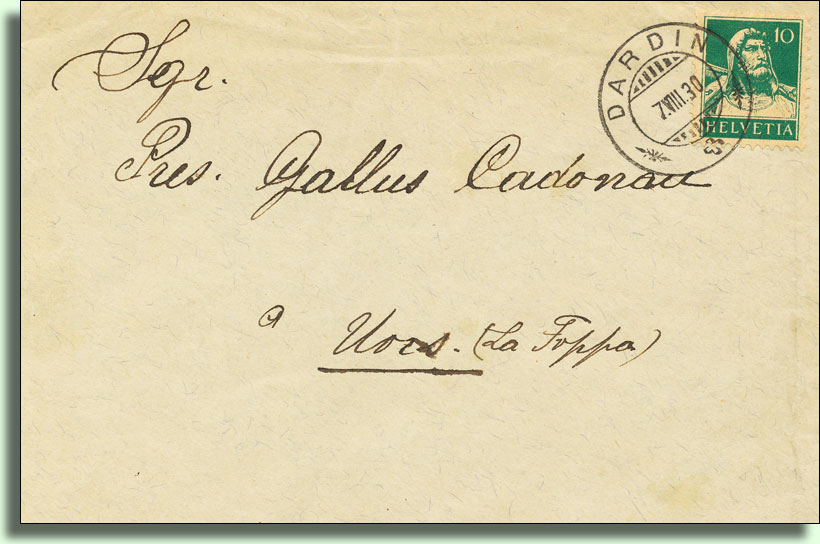 10
HELVETIA
DARDIN
7.VIII.30
Sgr.
Pres. Gallus Cadonau
à Uors. (La Foppa)